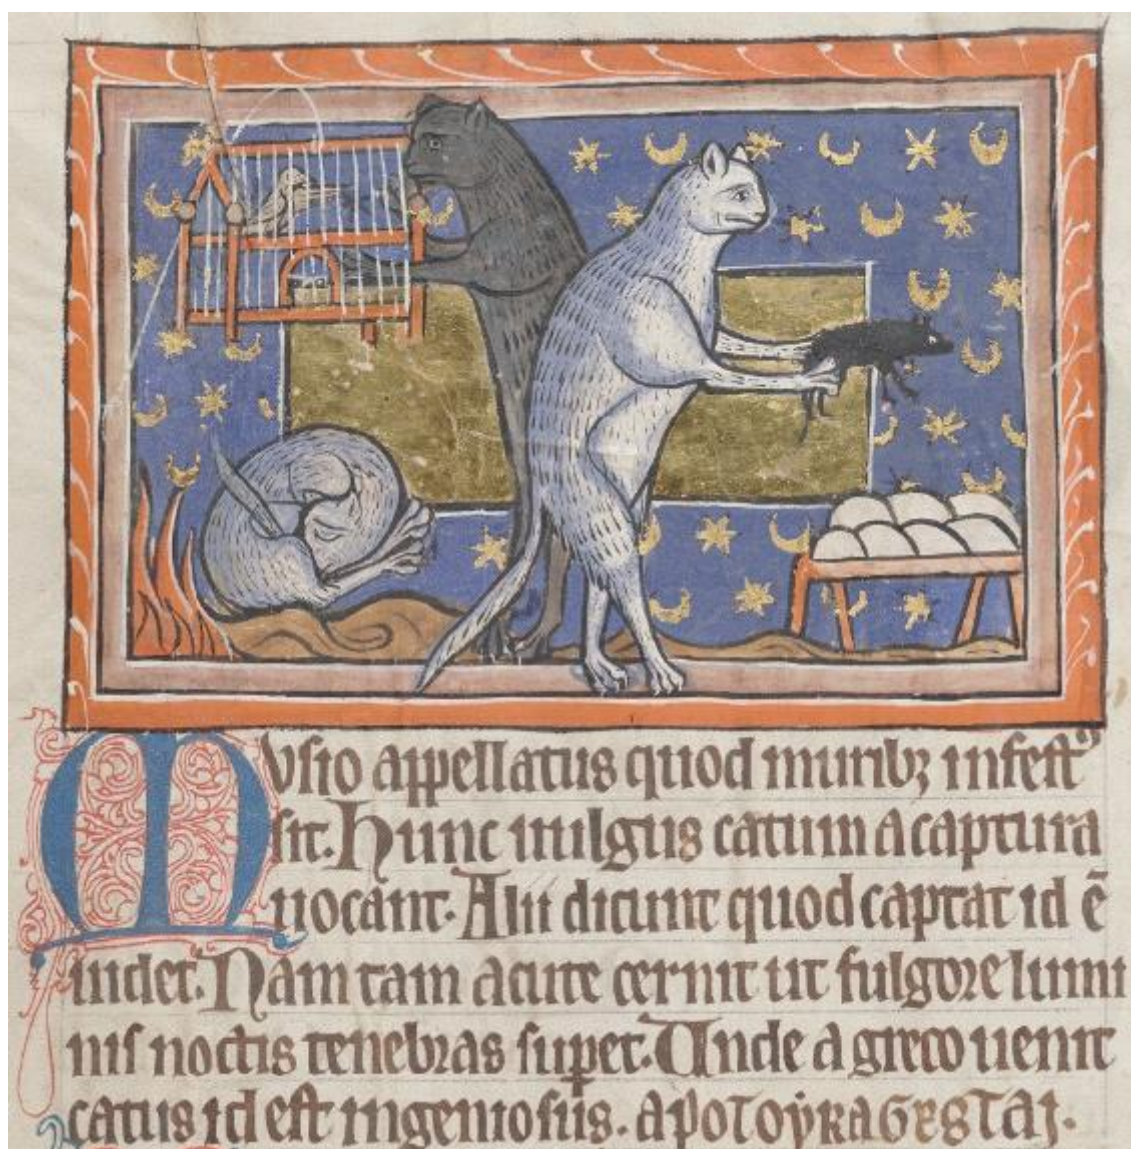 MVsio appellatus quod muribꝫ infestꝰ
sit. Hunc uulgus catum a captura
uocant. Alii dicunt quod captat id ē
uidet. Nam tam acute cernit ut fulgore lumi
nis noctis tenebras suꝑet. Unde a greco uenit
catus id est ingeniosus. apotoykagestai.